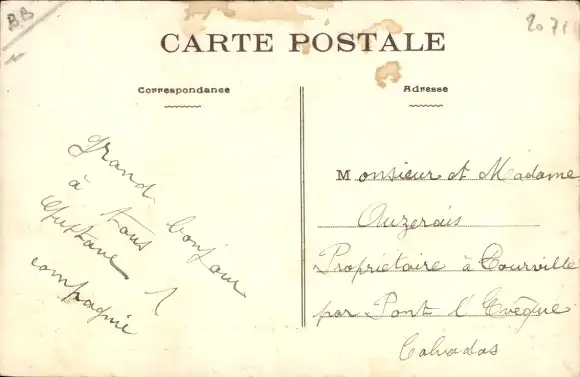 BB
2071
CARTE POSTALE
Correspondance
Adresse
Grand bonjour
à tous
Gustave &
compagnie
Monsieur et Madame
Auzerais
Propriétaire à Tourville
par Pont l'Evêque
Calvados